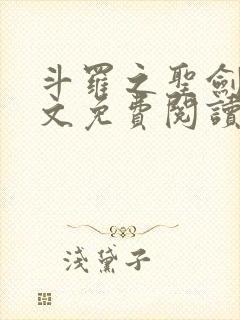 斗羅之聖劍
文免費閱讀
淺黛子